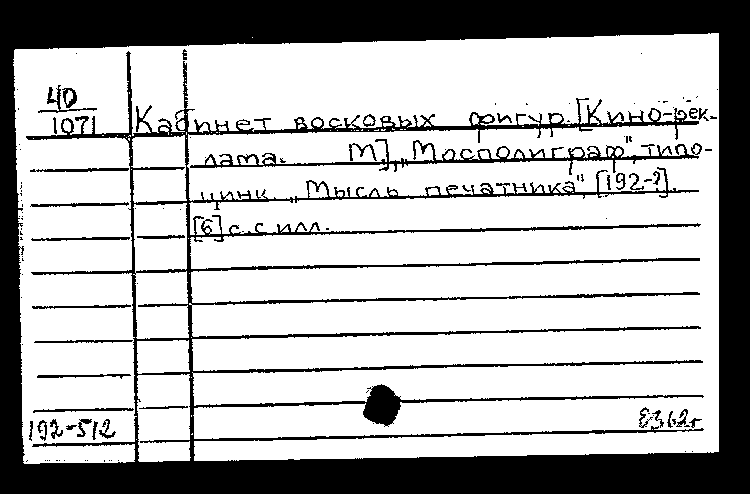 40
1071
Кабинет восковых фигур. [Кино-рек-
лама. М], „Мосполиграф", типо-
цинк. „Мысль печатника", [192-?].
[6] с. с илл.
192-512
8362г